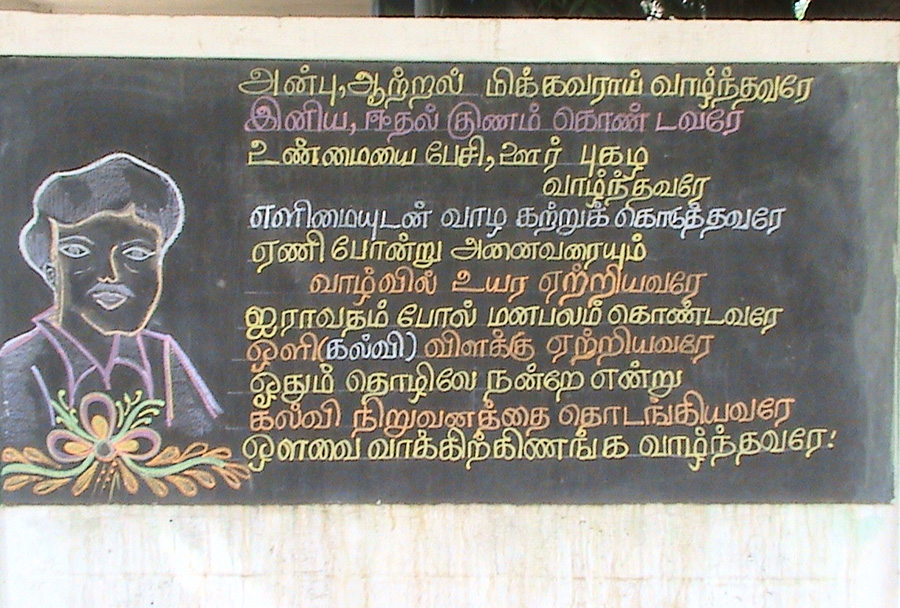 அன்பு,ஆற்றல் மிக்கவராய் வாழ்ந்தவரே
இனிய, ஈதல் குணம் கொண் டவரே
உண்மையை பேசி, ஊர் புகழ
வாழ்ந்தவரே
எளிமையுடன் வாழ கற்றுக் கொடுத்தவரே
ஏணி போன்று அனைவரையும்
வாழ்வில் உயர ஏற்றியவரே
ஐராவதம் போல் மனபலம் கொண்டவரே
ஒளி(கல்வி) விளக்கு ஏற்றியவரே
ஓதும் தொழிலே நன்றே என்று
கல்வி நிறுவனத்தை தொடங்கியவரே
ஔவை வாக்கிற்கிணங்க வாழ்ந்தவரே!